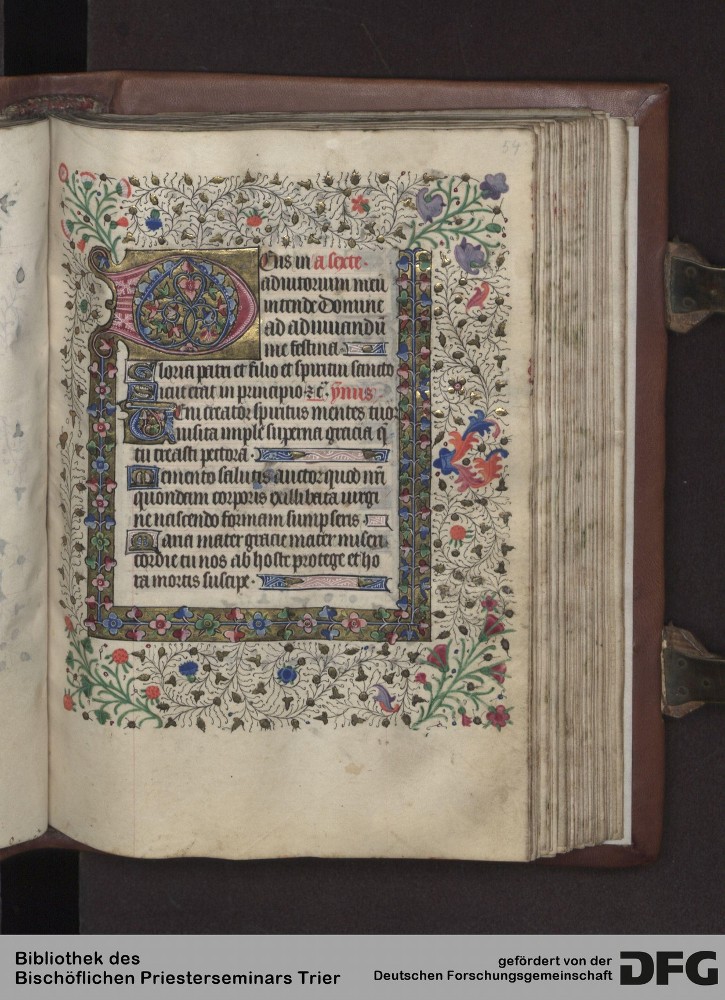 54
Deus in a sexte.
adiutorium meū
intende Domine
ad adiuuandū
me festina.
Gloria patri et filio et spiritui sancto
Sicut erat in principio ⁊ c̄. ymnus
Veni creator spiritus mentes tuoꝝ
uisita imple superna gracia q̄
tu creasti pectora.
Memento salutis auctor quod nr̄i
quondam corporis ex illibata uirgi
ne nascendo formam sumpseris.
Maria mater gracie mater miseri
cordie tu nos ab hoste protege et ho
ra mortis suscipe.
Bibliothek des
Bischöflichen Priesterseminars Trier
gefördert von der
Deutschen Forschungsgemeinschaft
DFG